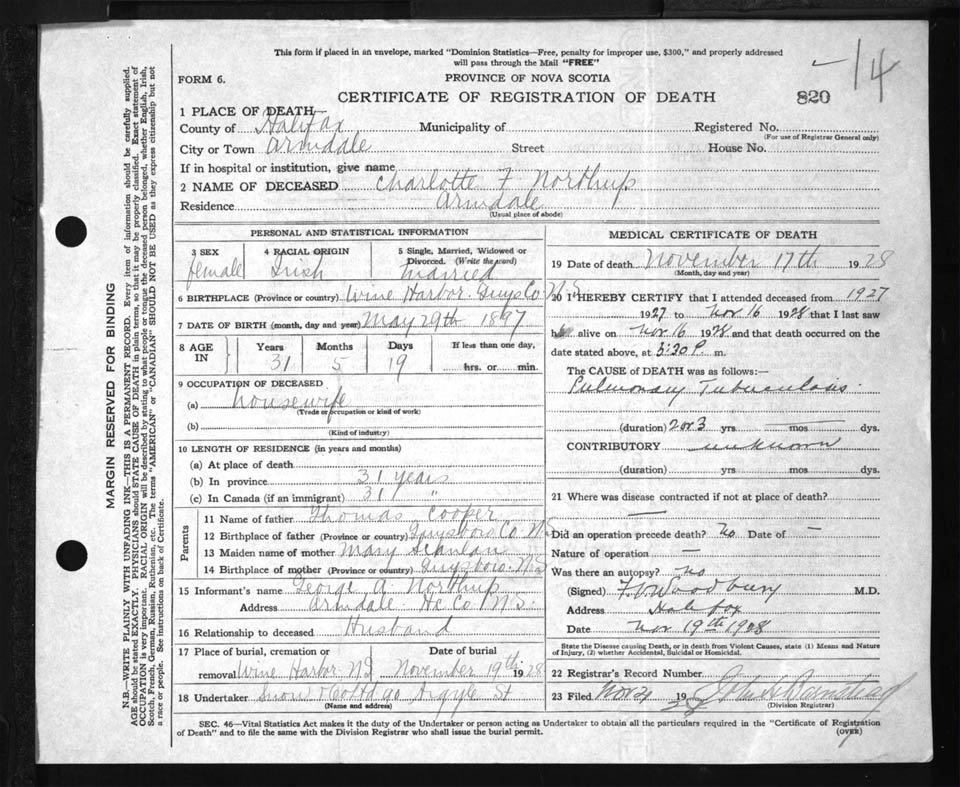 This form if placed in an envelope, marked "Dominion Statistics—Free, penalty for improper use, $300," and properly addressed
will pass through the Mail "FREE"
—14
FORM 6.
PROVINCE OF NOVA SCOTIA
CERTIFICATE OF REGISTRATION OF DEATH
820
1 PLACE OF DEATH—
County of Halifax Municipality of Registered No.
(For use of Registrar General only)
City or Town Armdale Street House No.
If in hospital or institution, give name
2 NAME OF DECEASED Charlotte F Northup
Residence Armdale
(Usual place of abode)
PERSONAL AND STATISTICAL INFORMATION
3 SEX female
4 RACIAL ORIGIN Irish
5 Single, Married, Widowed or Divorced. (Write the word) married
6 BIRTHPLACE (Province or country) Wine Harbor Guys Co N.S.
7 DATE OF BIRTH (month, day and year) May 29th 1897
8 AGE IN Years 31 Months 5 Days 19 If less than one day, hrs. or min.
9 OCCUPATION OF DECEASED
(a) housewife
(Trade or occupation or kind of work)
(b)
(Kind of industry)
10 LENGTH OF RESIDENCE (in years and months)
(a) At place of death
(b) In province 31 years
(c) In Canada (if an immigrant) 31 "
Parents
11 Name of father Thomas Cooper
12 Birthplace of father (Province or country) Guysboro Co. N.S
13 Maiden name of mother Mary Scanlan
14 Birthplace of mother (Province or country) Guysboro. N.S
15 Informant's name George A. Northup
Address Armdale Hx Co N.S.
16 Relationship to deceased Husband
17 Place of burial, cremation or removal Wine Harbor NS
Date of burial November 19th 1928
18 Undertaker Snow & Co Ltd 90 Argyle St
(Name and address)
MEDICAL CERTIFICATE OF DEATH
19 Date of death November 17th 1928
(Month, day and year)
20 I HEREBY CERTIFY that I attended deceased from 1927
1927 to Nov 16 1928 that I last saw
h alive on Nov 16 1928 and that death occurred on
date stated above, at 3:30 P. m.
The CAUSE OF DEATH was as follows:—
Pulmonary Tuberculosis.
(duration) 2 or 3 yrs — dys.
CONTRIBUTORY unknown
(duration) yrs dys.
21 Where was disease contracted if not at place of death?
—
Did an operation precede death? No Date of —
Nature of operation —
Was there an autopsy? No
(Signed) F.V. Woodbury M.D.
Address Halifax
Date Nov 19th 1928
State the Disease causing Death, or in death from Violent Causes, state (1) Means and Nature
of Injury, (2) whether Accidental, Suicidal or Homicidal.
22 Registrar's Record Number
23 Filed Nov 21 1928 John H
(Division Registrar)
SEC. 46—Vital Statistics Act makes it the duty of the Undertaker or person acting as Undertaker to obtain all the particulars required in the "Certificate of Registration
of Death" and to file the same with the Division Registrar who shall issue the burial permit.
(OVER)
MARGIN RESERVED FOR BINDING
N.B.—WRITE PLAINLY WITH UNFADING INK—THIS IS A PERMANENT RECORD. Every item of information should be carefully supplied.
AGE should be stated EXACTLY. PHYSICIANS should STATE CAUSE OF DEATH in plain terms, so that it may be properly classified. Exact statement of
OCCUPATION is very important. RACIAL ORIGIN will be described by stating to what people or tongue the deceased person belonged, whether English, Irish,
Scotch, French, German, Russian, Ruthenian, etc. The terms "AMERICAN" or "CANADIAN" SHOULD NOT BE USED as they express citizenship but not
a race or people. See instructions on back of Certificate.